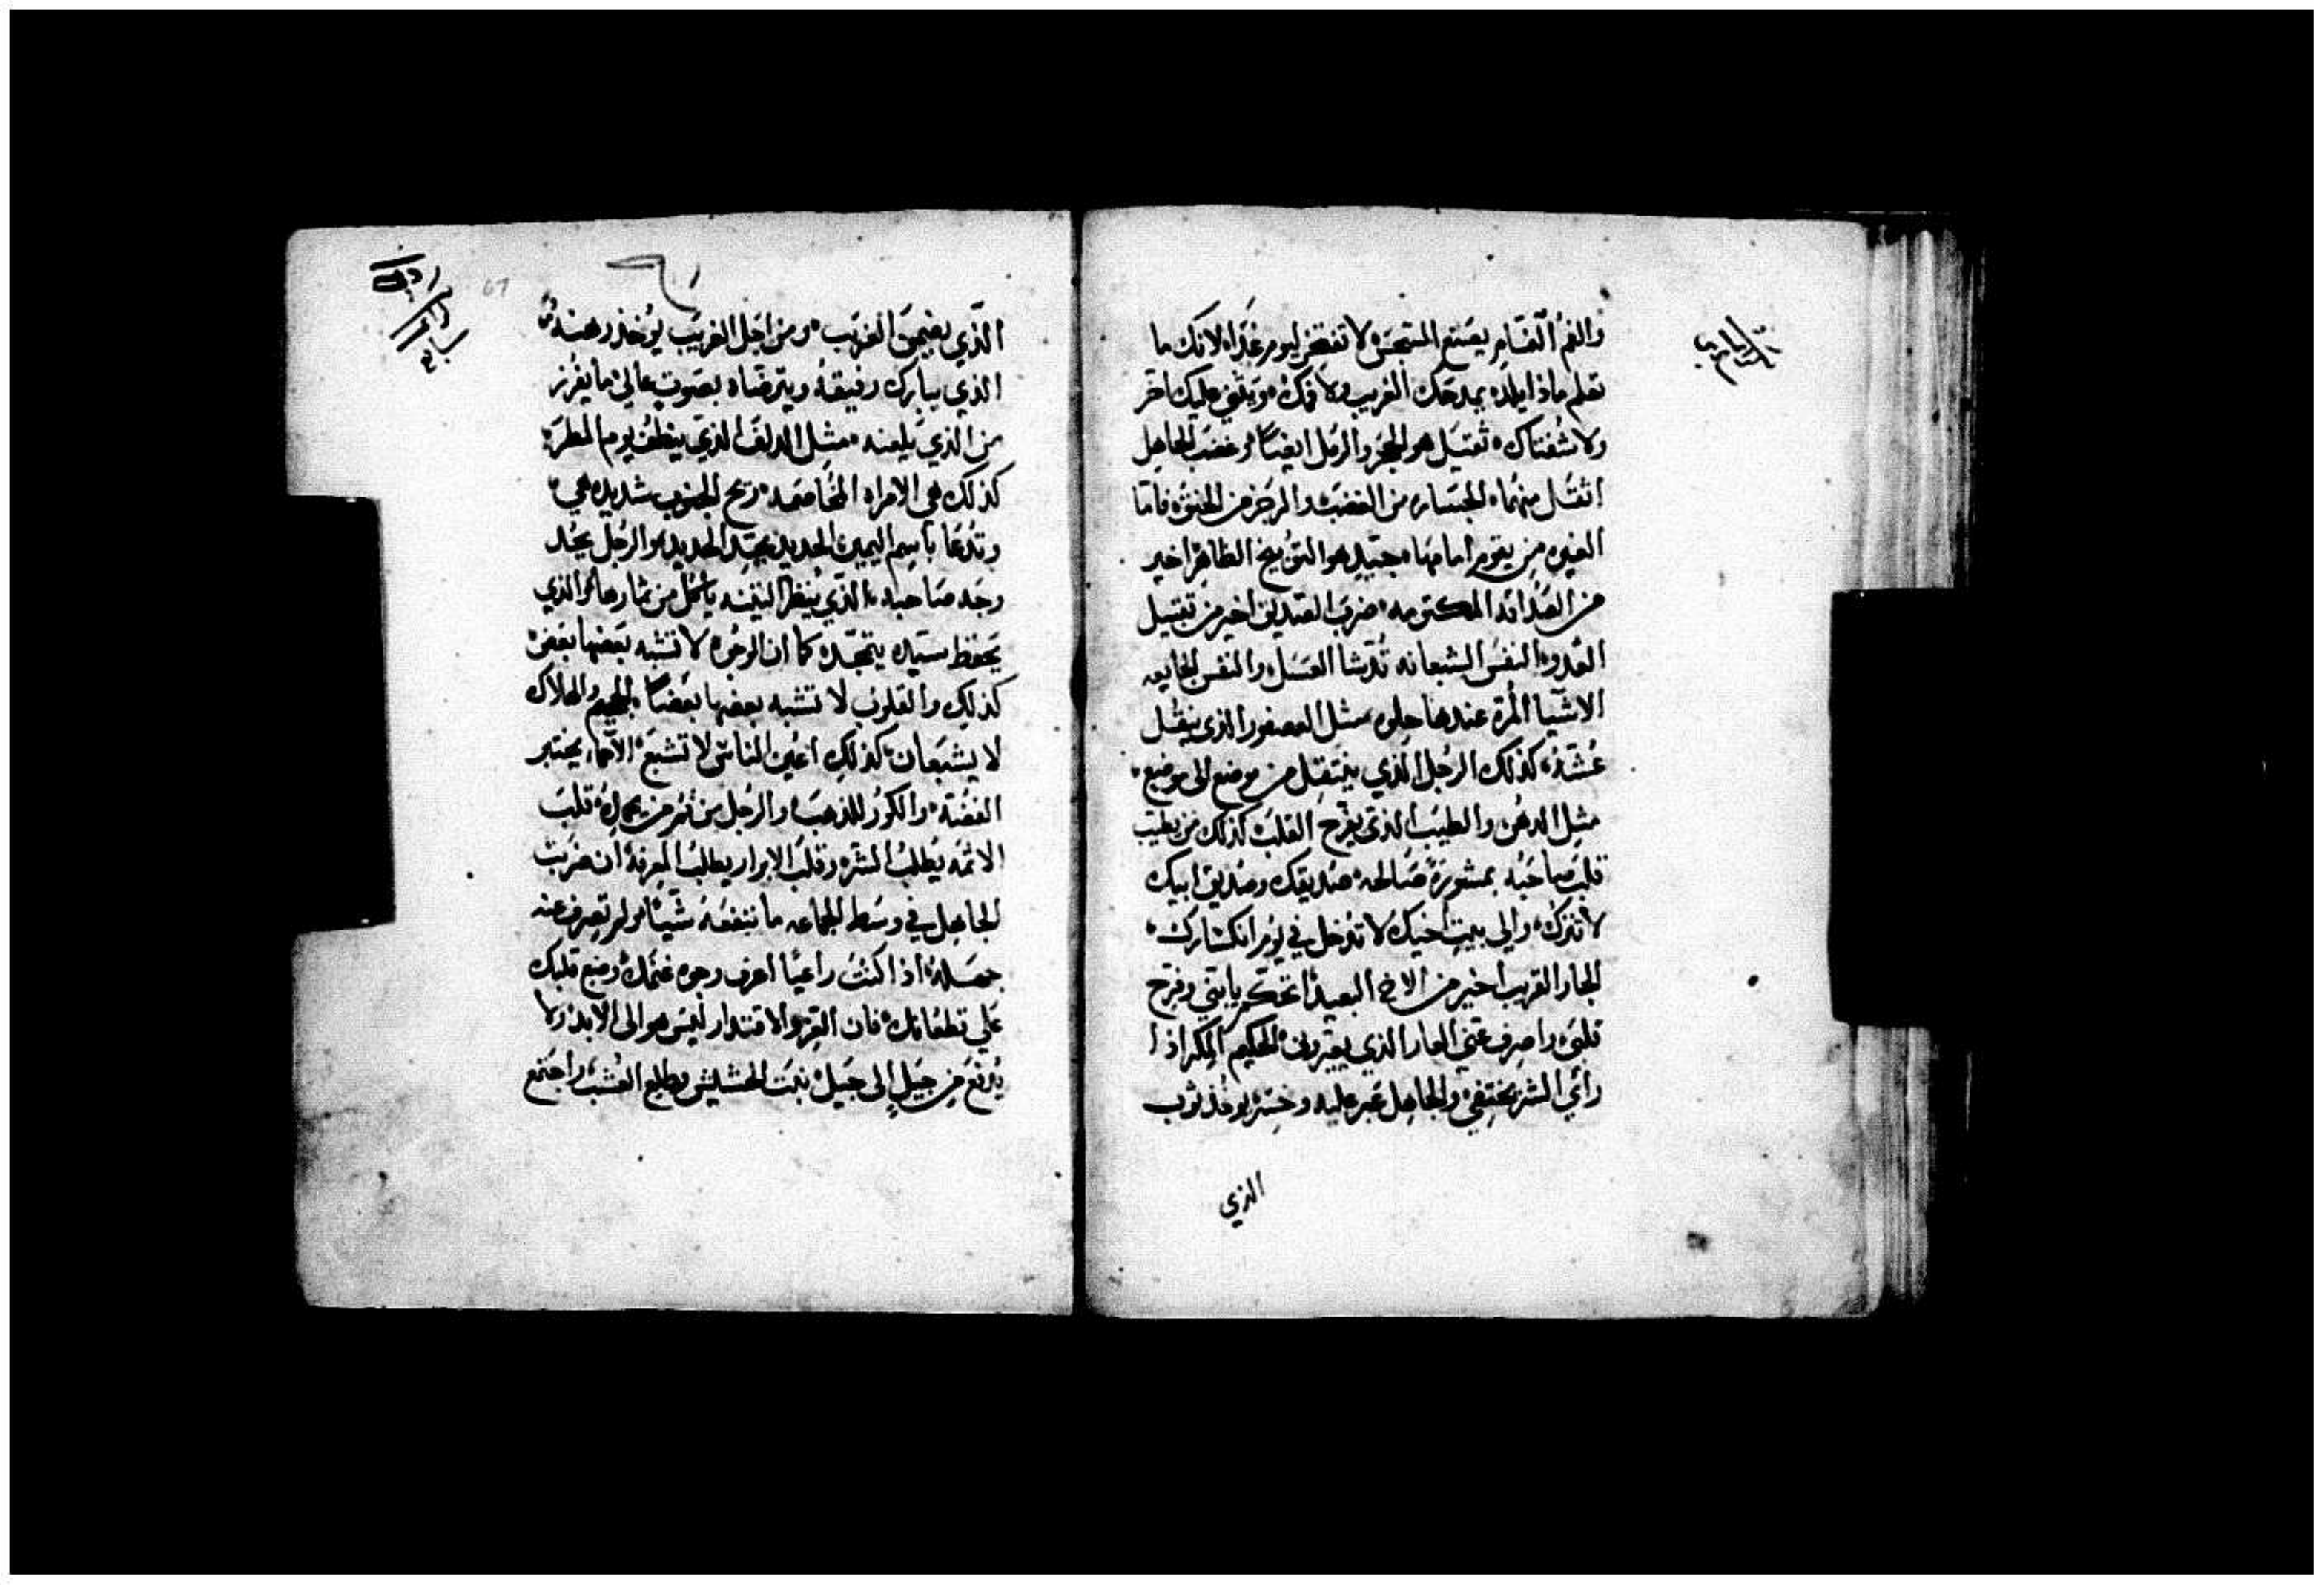 والفم القسام يصنع السجس لا تفتخر ليوم غدا لانك ما
تعلم ماذا يلده يمدحك الغريب ولا فمك ويثني عليك اخر
ولا شفتاك ثقيل هو الحجر والرمل ايضا وغضب الجاهل
اثقل منهما الجساره من الغضب والرجز من الحنق فاما
الغيره من يقوم امامها جيد هو التوبيخ الظاهر اخير
من الصداقه المكتومه ضرب الصديق اخير من تقبيل
العدو النفس الشبعانه العسل والنفس الجايعه
الاشيا المرة عندها حلوه مثل العصفور الذي ينقل
عشه كذلك الرجل الذي ينتقل من موضع الى موضع
مثل الدهن والطيب الذي يفرح القلب كذلك من يطيب
قلب صاحبه بمشورة صالحه صديقك وصديق ابيك
لا تترك والى بيت اخيك لا تدخل في يوم انكسارك
الجار القريب اخير من الاخ البعيد اتحكم يا بني وفرح
قلبي واصرف عني العار الذي يعيرون الحكيم المكر اذا
راي الشر يختفي والجاهل عبر عليه وخسر يوخذ ثوب
الذي
الذي يضمن الغريب ومن اجل الغريب يوخذ رهنه
الذي يبارك رفيقه ويترضاه بصوت عالي ما يفرز
من الذي يلعنه مثل الدلف الذي ينطف يوم المطر
كذلك هي الامراه المخاصمه ريح الجنوب شديده هي
وتدعا باسم اليمين الحديد يحد الحديد والرجل يحد
وجه صاحبه الذي ينظر التينه ياكل من ثمارها والذي
يحفظ سيده يتمجد كما ان الوجوه لا تشبه بعضها بعض
كذلك والقلوب لا تشبه بعضها بعضا الجحيم والهلاك
لا يشبعان كذلك اعين الناس لا تشبع يختبر
الفضة والكور للذهب والرجل من فم من قلب
الاثمه يطلب الشر وقلب الابرار يطلب المعرفة ان ضربت
الجاهل في وسط الجماعه ما تنفعه شيا ولم تصرف عنه
جهله اذا كنت راعيا اعرف وجوه غنمك وضع قلبك
على قطعانك فان العز والاقتدار ليس هو الى الابد ولا
يدفع من جيل الى جيل نبت الحشيش وطلع العشب واجتمع